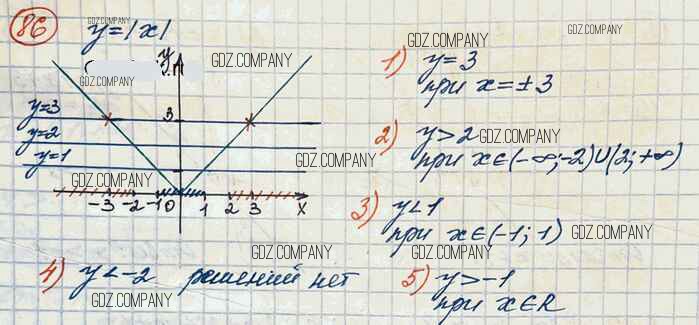 86
GDZ.COMPANY
y=|x|
y
GDZ.COMPANY
GDZ.COMPANY
y=3
3
y=2
y=1
GDZ.COMPANY
-3 -2 -1 0 1 2 3 x
4) y<-2 решений нет
GDZ.COMPANY
GDZ.COMPANY
GDZ.COMPANY
1) y=3
при x=±3
GDZ.COMPANY
2) y>2
при x∈(-∞;-2)∪(2;+∞)
GDZ.COMPANY
3) y<1
при x∈(-1;1)
GDZ.COMPANY
GDZ.COMPANY
GDZ.COMPANY
5) y>-1
при x∈R
GDZ.COMPANY